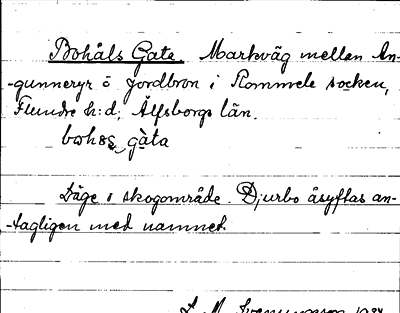 Bohåls Gata. Markväg mellan An-
-gunneryr o Jordbron i Rommele socken,
Flundre h:d, Älfsborgs län.
gàta
Läge i skogområde. Djurbo åsyftas an-
-tagligen med namnet.